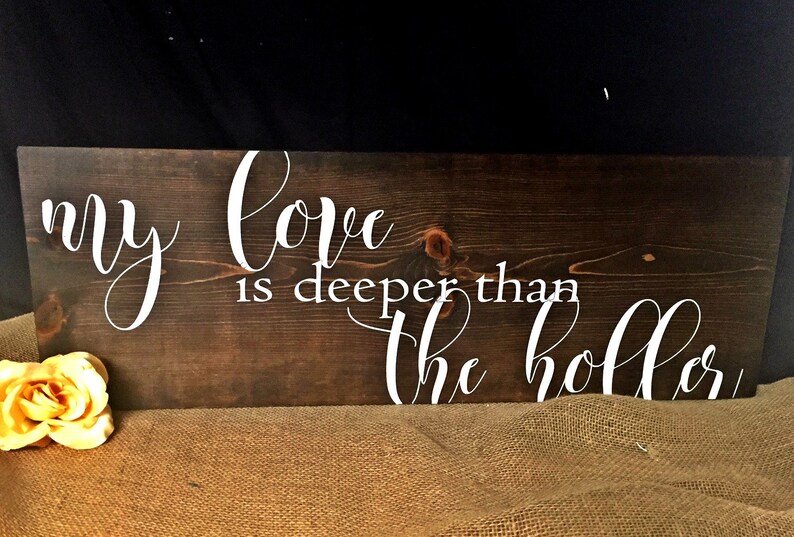 my love
is deeper than
the holler